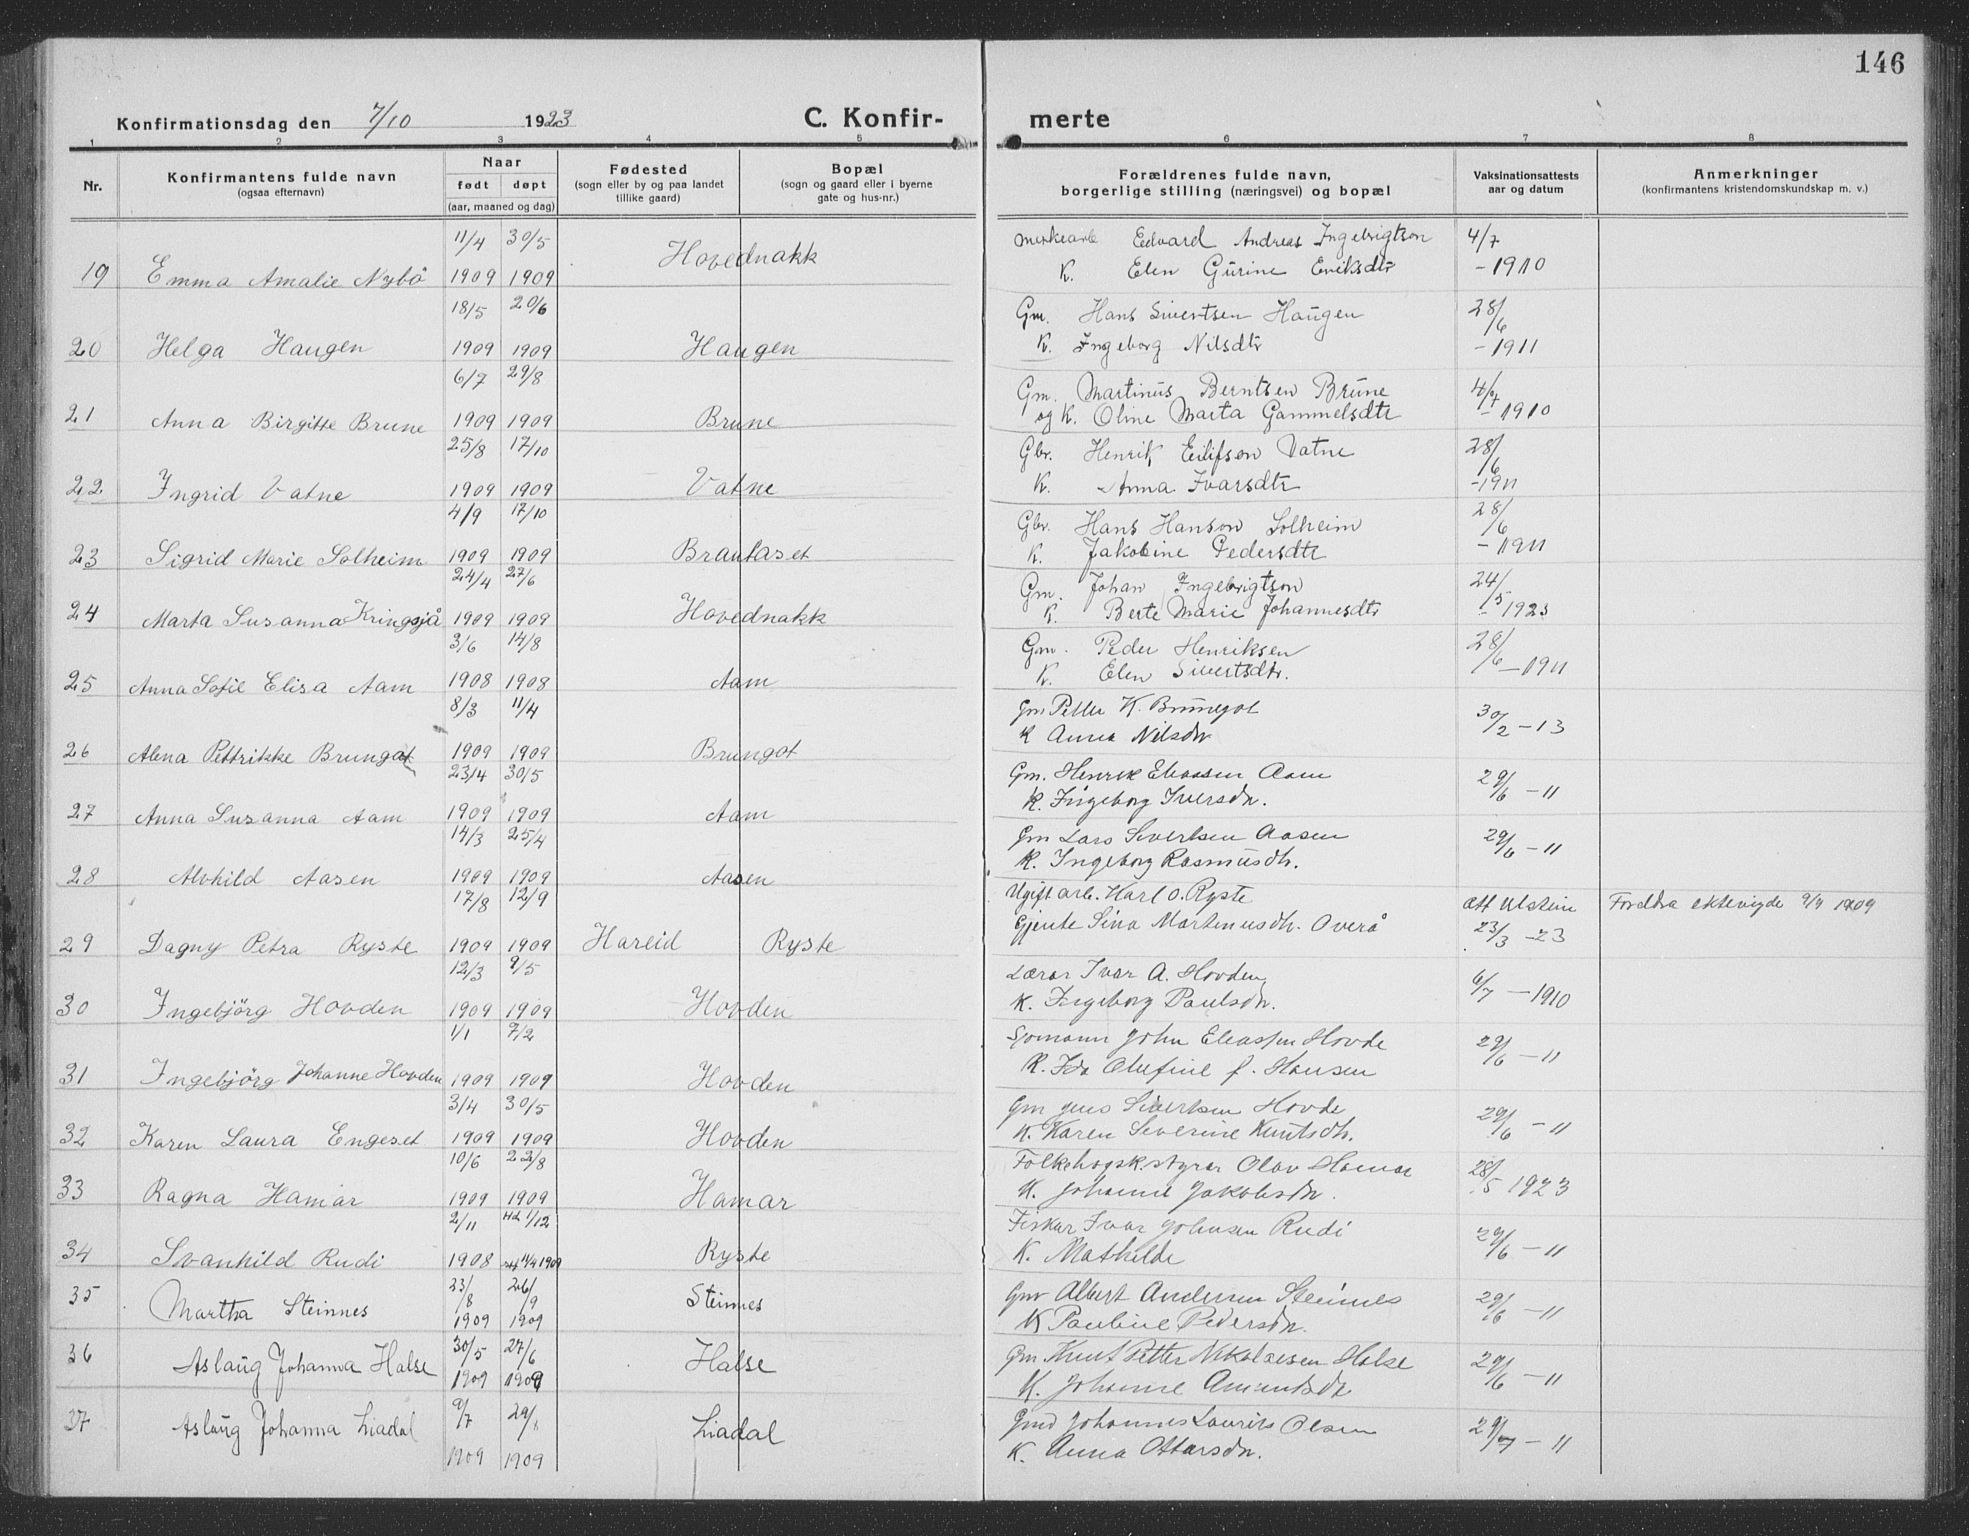 146
Konfirmationsdag den 7/10 1923 C. Konfir- merte
1 2 3 4 5 6 7 8
Nr. Konfirmantens fulde navn (ogsaa efternavn) Naar født døpt (aar, maaned og dag) Fødested (sogn eller by og paa landet tillike gaard) Bopæl (sogn og gaard eller i byerne gate og hus-nr.) Forældrenes fulde navn, borgerlige stilling (næringsvei) og bopæl Vaksinationsattests aar og datum Anmerkninger (konfirmantens kristendomskundskap m. v.)
11/4 30/5 Hovednakk Edvard Andreas Ingebrigtson 4/7
19 Emma Amalie Nybö 1909 1909 K. Elen Gurine Eriksdtr - 1910
18/5 20/6 Gm. Hans Sivertsen Haugen 28/6
20 Helga Haugen 1909 1909 Haugen K. Ingeborg Nilsdtr - 1911
6/7 29/8 Gm. Martinus Berntsen Brune 4/7
21 Anna Birgitte Brune 1909 1909 Brune og K. Oline Marta Gammelsdtr - 1910
25/8 17/10 Gbr. Henrik Eilifson Vatne 28/6
22 Ingrid Vatne 1909 1909 Vatne K. Anna Ivarsdtr - 1911
4/9 17/10 Gbr. Hans Hanson Solheim 28/6
23 Sigrid Marie Solheim 1909 1909 Brautaset K. Jakobine Pedersdtr - 1911
24/4 27/6 Gm. Johan Ingebrigtson 24/5
24 Marta Susanna Kringsjå 1909 1909 Hovednakk K. Berte Marie Johannesdtr - 1923
3/6 14/8 Gm. Peder Henriksen 28/6
25 Anna Sofie Elisa Aam 1908 1908 Aam K. Elen Sivertsdtr. - 1911
8/3 11/4 Gm Petter K. Brungot 30/2 - 13
26 Alena Pettrikke Brungot 1909 1909 Brungot K Anna Nilsdr
23/4 30/5 Gm. Henrik Eliassen Aam 29/6 - 11
27 Anna Susanna Aam 1909 1909 Aam K. Ingeborg Iversdr.
14/3 25/4 Gm Lars Sivertsen Aasen 29/6 - 11
28 Alvhild Aasen 1909 1909 Aasen K. Ingeborg Rasmusdtr.
17/8 12/9 Ugift arb. Karl O. Ryste Att Ulstein Fordtra ektevigde 9/4 1909
29 Dagny Petra Ryste 1909 1909 Hareid Ryste Gjente Sina Martinusdtr. Overå 23/3 - 23
12/3 9/5 Lærar Ivar A. Hovden 6/7 - 1910
30 Ingebjörg Hovden 1909 1909 Hovden K. Ingeborg Paulsdr.
1/1 7/2 Sjømann John Eliassen Hovde 29/6 - 11
31 Ingebjörg Johanne Hovden 1909 1909 Hovden K. Ida Olufine f. Hansen
3/4 30/5 Gm Jens Sivertsen Hovde 29/6 - 11
32 Karen Laura Engeset 1909 1909 Hovden K. Karen Severine Knutsdtr.
10/6 22/8 Folkehøgsk.styrar Olav Hamar 28/5 1923
33 Ragna Hamar 1909 1909 Hamar K. Johanne Jakobsdr.
2/11 Hd. 1/12 Fiskar Ivar Johnsen Rudi 29/6 - 11
34 Svanhild Rudi 1908 1909 Ryste K. Mathilde
35 Martha Steinnes 23/8 1909 26/9 1909 Steinnes Gm Albert Andersen Steinnes 29/6 - 11
K Pauline Pedersdr.
36 Aslaug Johanna Halse 30/5 1909 27/6 1909 Halse Gm Knut Petter Nikolaisen Halse 29/6 - 11
K. Johanne Amundsdr
37 Aslaug Johanna Liadal 9/7 1909 29/8 1909 Liadal Gmd Johannes Laurits Olsen 29/7 - 11
K. Anna Ottarsdr.